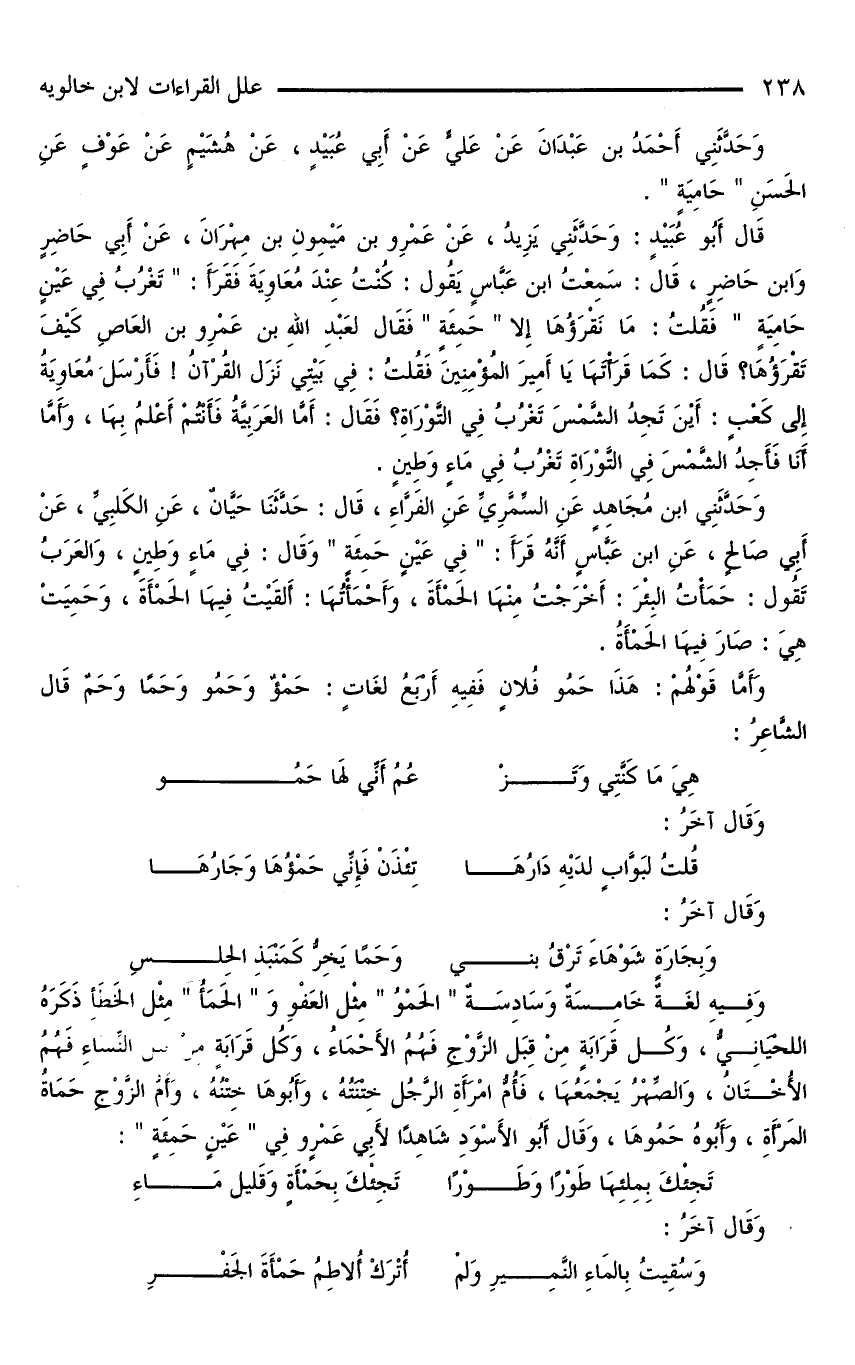 ٢٣٨ علل القراءات لابن خالويه
وَحَدَّثَنِي أَحْمَدُ بن عَبْدَانَ عَنْ عَلِيٍّ عَنْ أَبِي عُبَيْدٍ ، عَنْ هُشَيْمٍ عَنْ عَوْفٍ عَنِ
الحَسَنِ " حَامِيَةٍ " .
قَال أَبُو عُبَيْدٍ : وَحَدَّثَنِي يَزِيدُ ، عَنْ عَمْرِو بن مَيْمُونِ بن مِهْرَانَ ، عَنْ أَبِي حَاضِرٍ
وَابن حَاضِرٍ ، قَال : سَمِعْتُ ابن عَبَّاسٍ يَقُول : كُنْتُ عِنْدَ مُعَاوِيَةَ فَقَرَأَ : " تَغْرُبُ فِي عَيْنٍ
حَامِيَةٍ " فَقُلتُ : مَا نَقْرَؤُهَا إلا " حَمِئَةٍ " فَقَال لعَبْدِ اللهِ بن عَمْرِو بن العَاصِ كَيْفَ
تَقْرَؤُهَا؟ قَال : كَمَا قَرَأْتَهَا يَا أَمِيرَ المُؤْمِنِينَ فَقُلتُ : فِي بَيْتِي نَزَل القُرْآنُ ! فَأَرْسَل مُعَاوِيَةُ
إِلى كَعْبٍ : أَيْنَ تَجِدُ الشَّمْسَ تَغْرُبُ فِي التَّوْرَاةِ؟ فَقَال : أَمَّا العَرَبِيَّةُ فَأَنْتُمْ أَعْلمُ بِهَا ، وَأَمَّا
أَنَا فَأَجِدُ الشَّمْسَ فِي التَّوْرَاةِ تَغْرُبُ فِي مَاءٍ وَطِينٍ .
وَحَدَّثَنِي ابن مُجَاهِدٍ عَنِ السِّمَّرِيِّ عَنِ الفَرَّاءِ ، قَال : حَدَّثَنَا حَيَّانٌ ، عَنِ الكَلبِيِّ ، عَنْ
أَبِي صَالحٍ ، عَنِ ابن عَبَّاسٍ أَنَّهُ قَرَأَ : " فِي عَيْنٍ حَمِئَةٍ " وَقَال : فِي مَاءٍ وَطِينٍ ، وَالعَرَبُ
تَقُول : حَمَأْتُ البِئْرَ : أَخْرَجْتُ مِنْهَا الحَمْأَةَ ، وَأَحْمَأْتُهَا : أَلقَيْتُ فِيهَا الحَمْأَةَ ، وَحَمِيَتْ
هِيَ : صَارَ فِيهَا الحَمْأَةُ .
وَأَمَّا قَوْلُهُمْ : هَذَا حَمُو فُلانٍ فَفِيهِ أَرْبَعُ لغَاتٍ : حَمْؤٌ وَحَمُو وَحَمًا وَحَمٌ قَال
الشَّاعِرُ :
هِيَ مَا كَنَّتِي وَتَـــــزْ عُمُ أَنِّي لهَا حَمُـــــــــو
وَقَال آخَرُ :
قُلتُ لبَوَّابٍ لدَيْهِ دَارُهَـــــا تِئْذَنْ فَإِنِّي حَمْؤُهَا وَجَارُهَـــــا
وَقَال آخَرُ :
وَبِجَارَةٍ شَوْهَاءَ تَرْقُبُنـــــــي وَحَمًا يَخِرُّ كَمَنْبَذِ الحِلـــــــسِ
وَفِـــيهِ لغَـــةٌ خَامِـــسَةٌ وَسَادِسَـــةٌ " الحَمْوُ " مِثْل العَفْوِ وَ " الحَمَأُ " مِثْل الخَطَأِ ذَكَرَهُ
اللحْيَانِـــيُّ ، وَكُـــل قَرَابَةٍ مِنْ قِبَل الزَّوْجِ فَهُمُ الأَحْمَاءُ ، وَكُل قَرَابَةٍ النِّسَاءِ فَهُمُ
الأُخْـــتَانُ ، وَالصِّهْرُ يَجْمَعُهَا ، فَأُمُّ امْرَأَةِ الرَّجُل خِتْنَتُهُ ، وَأَبُوهَا خِتْنُهُ ، وَأُمُّ الزَّوْجِ حَمَاةُ
المَرْأَةِ ، وَأَبُوهُ حَمُوهَا ، وَقَال أَبُو الأَسْوَدِ شَاهِدًا لأَبِي عَمْرٍو فِي " عَيْنٍ حَمِئَةٍ " :
تَجِئْكَ بِمِلئِهَا طَوْرًا وَطَـــــوْرًا تَجِئْكَ بِحَمْأَةٍ وَقَليل مَـــــــاءِ
وَقَال آخَرُ :
وَسُقِيتُ بِالمَاءِ النَّمِـــــيرِ وَلمْ أُتْرَكْ أُلاطِمُ حَمْأَةَ الجَفْـــــــرِ